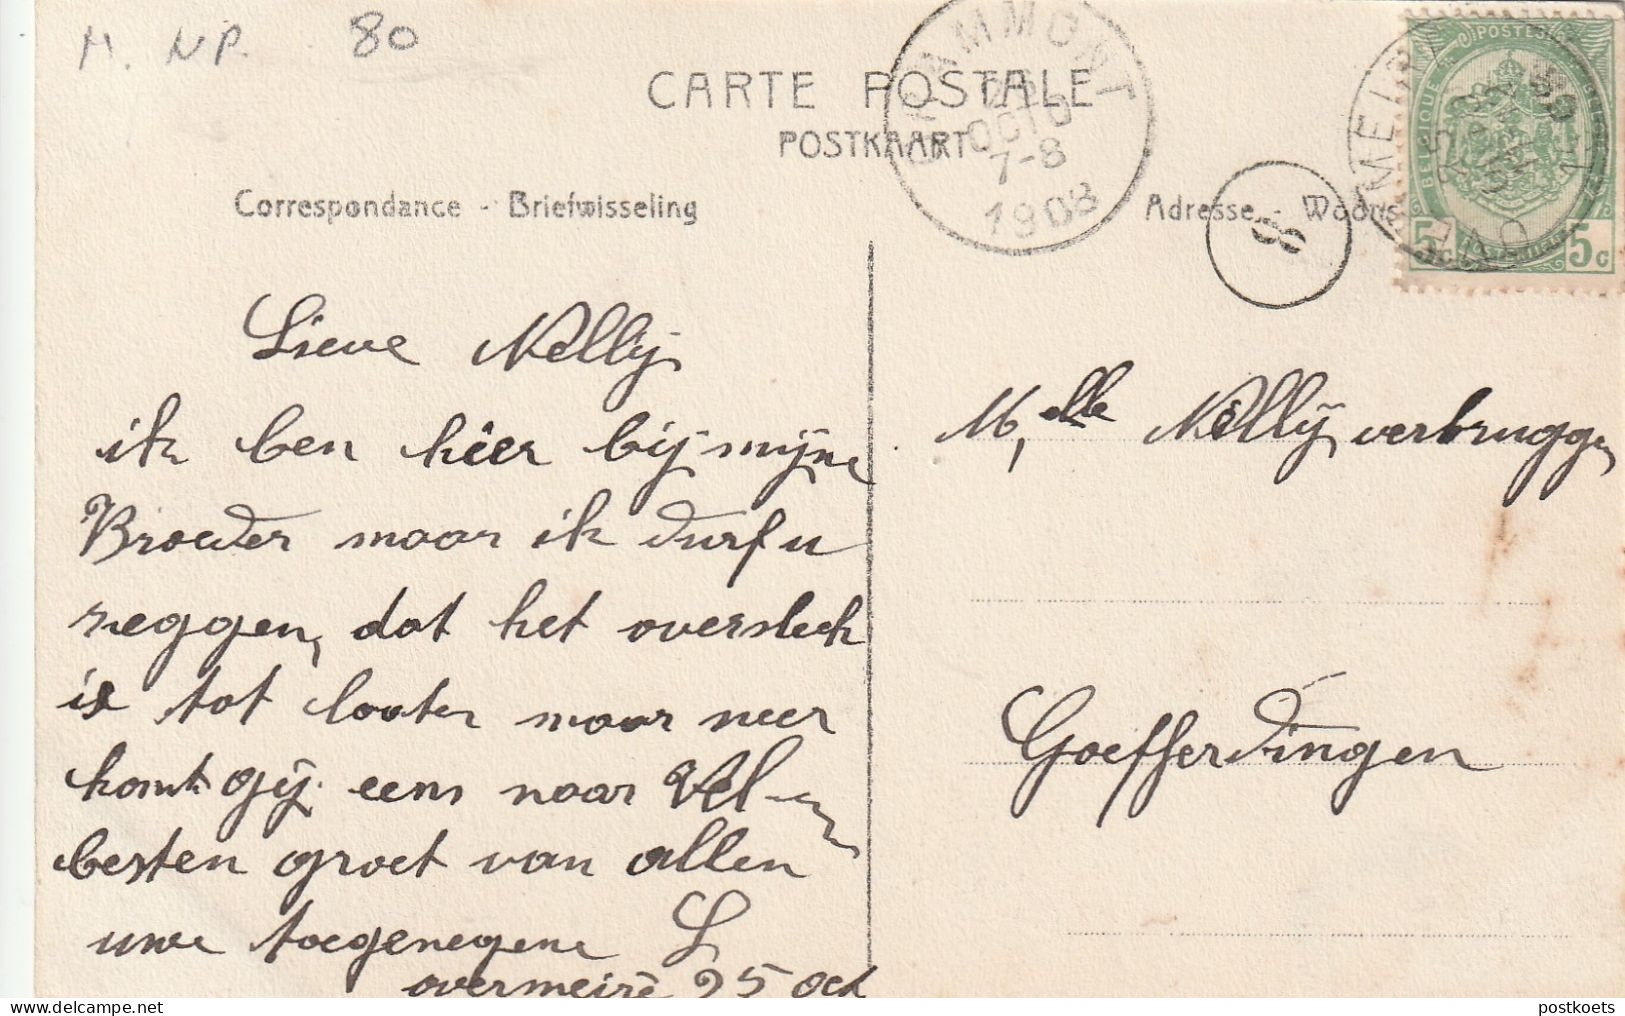 M. NP. 80
CARTE POSTALE
POSTKAART
Correspondance - Briefwisseling
Adresse - Woons
GRAMMONT
OCTO
7-8
1908
8
POSTES
BELGIQUE
5c 5c
Lieve Nellij
ik ben hier bij mijne
Broeder maar ik durf u
zeggen, dat het overslech
is tot looter maar neer
komt gij eens naar
besten groet van allen
uwe toegenegene L
overmeire 25 oct
M,elle Nellij verbruggen
Goefferdingen
postkoets